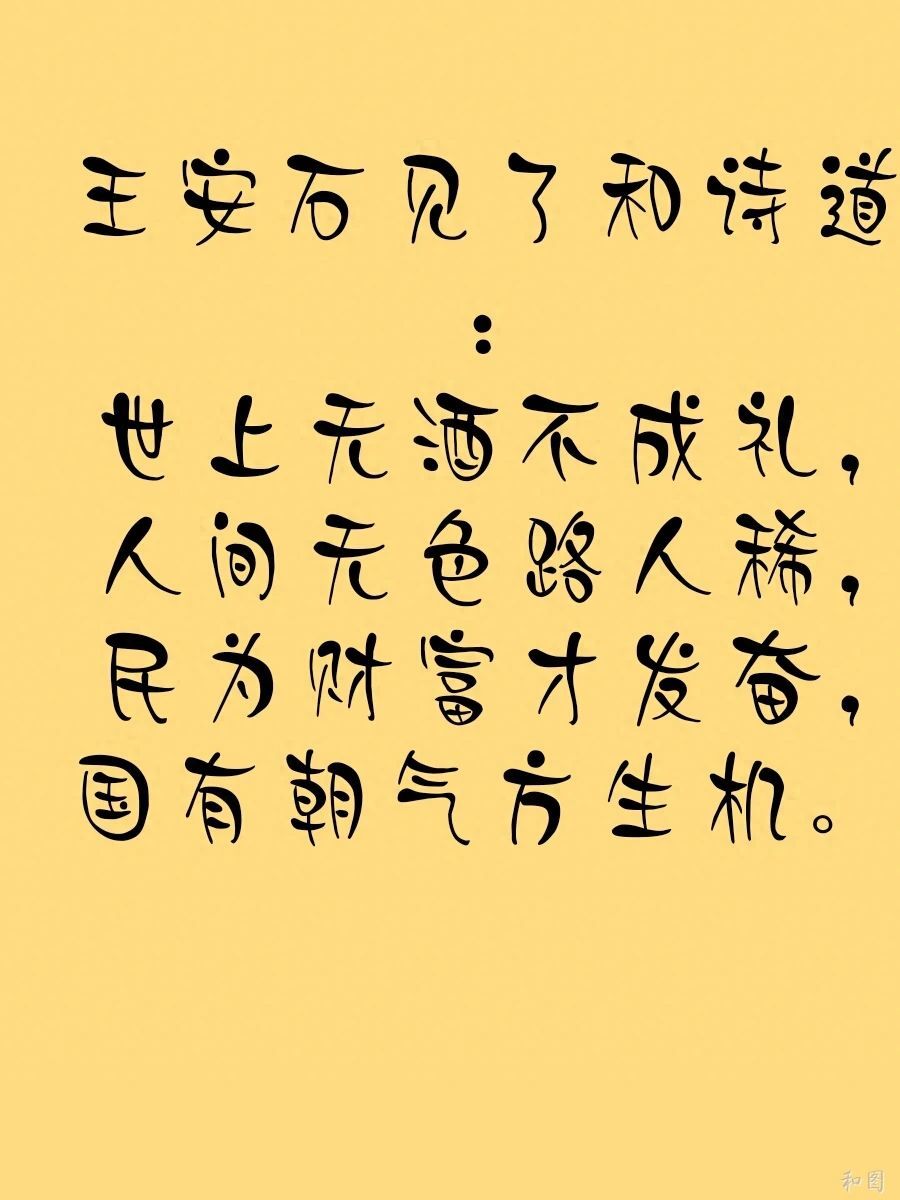 王安石见了和诗道
：
世上无酒不成礼，
人间无色路人稀，
民为财富才发奋，
国有朝气方生机。
和图